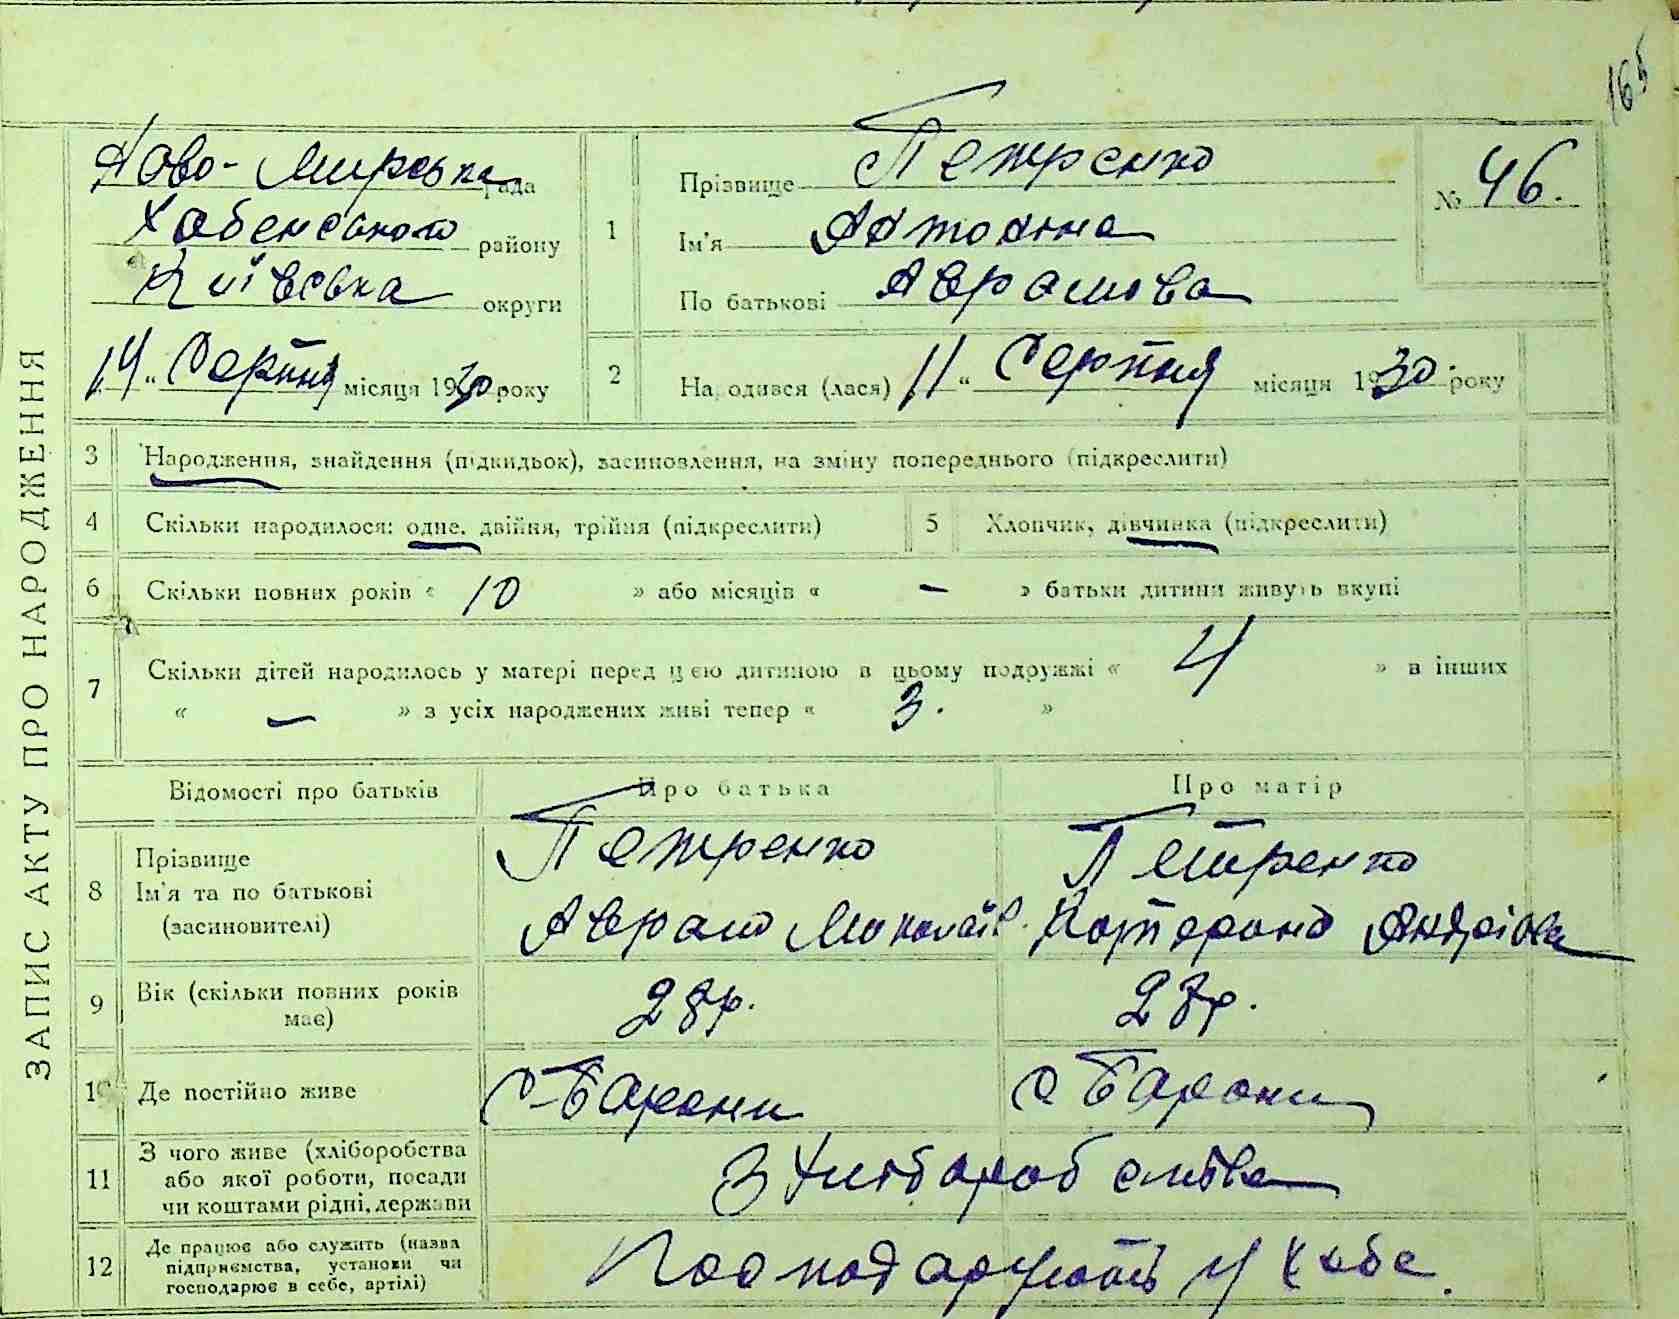 165
Ново-Мирська рада
Хабенського району
Київська округи
14 " Серпня місяця 1930 року
1 Прізвище Петренко
Ім'я Антоніна
По батькові Аврамова
№ 46.
2 Народився (лася) 11 " Серпня місяця 1930. року
ЗАПИС АКТУ ПРО НАРОДЖЕННЯ
3 Народження, знайдення (підкидьок), засиновлення, на зміну попереднього (підкреслити)
4 Скільки народилося: одне, двійня, трійня (підкреслити)
5 Хлопчик, дівчинка (підкреслити)
6 Скільки повних років « 10 » або місяців « — » батьки дитини живуть вкупі
7 Скільки дітей народилось у матері перед цією дитиною в цьому подружжі « 4 » в інших
« — » з усіх народжених живі тепер « 3. »
Відомості про батьків Про батька Про матір
8 Прізвище
Ім'я та по батькові
(засиновителі)
Петренко
Аврам Миколаїв.
Петренко
Андріова
9 Вік (скільки повних років
має)
28 р.
27 р.
10 Де постійно живе
с. Барани
с Барани
11 З чого живе (хліборобства
або якої роботи, посади
чи коштами рідні, держави
З Хліборобства
12 Де працює або служить (назва
підприємства, установи чи
господарює в себе, артілі)
у себе.